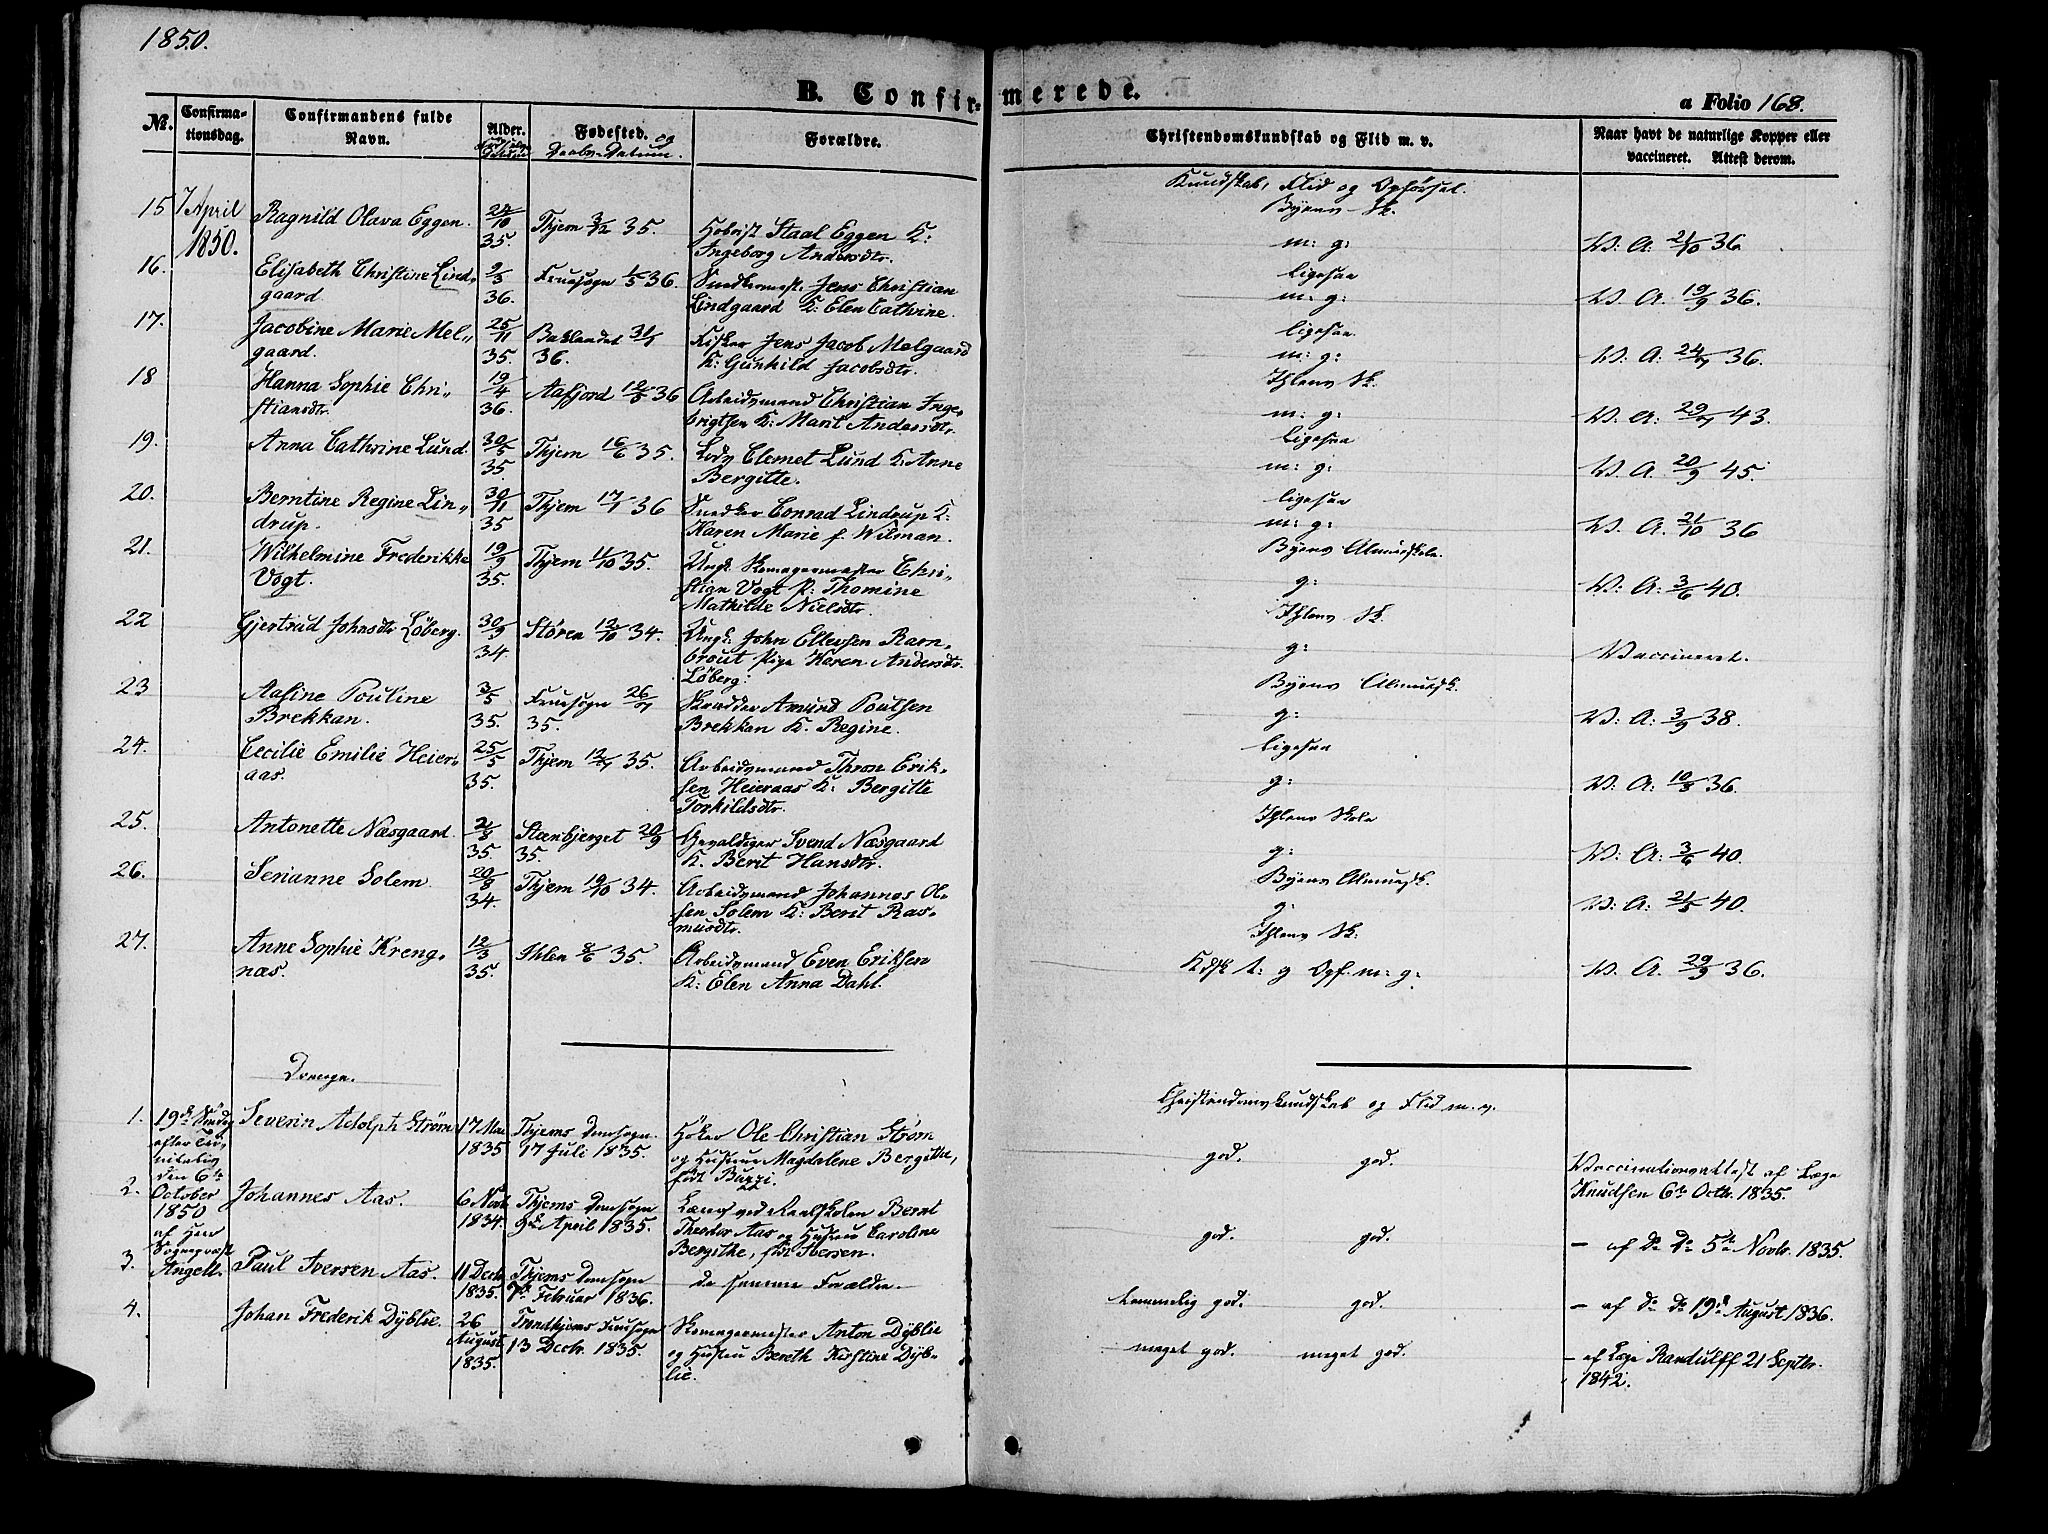 1850.
B. Confirmerede.
a Folio 168.
№. Confirmationsdag. Confirmandens fulde Navn. Alder. Fødested. og Daabs-Datum. Forældre. Christendomskundskab og Flid m. v. Naar havt de naturlige Kopper eller vaccineret. Attest derom.
Kundskab, Flid og Opførsel.
15 7 April 1850. Ragnild Olava Eggen. 24/10 35. Thjem 3/12 35. Hobvist Staal Eggen K: Ingeborg Andersdtr. Byens Sk. m: g: V: A: 21/10 36
16. Elisabeth Christine Lindgaard 2/3 36. Fruesogn 1/5 36. Snedkermest. Jens Christian Lindgaard K: Elen Cathrine. ligesaa m: g: V. A. 19/9 36.
17. Jacobine Marie Melgaard. 25/11 35. Baklandet 31/1 36. Fisker Jens Jacob Melgaard K: Gunhild Jacobsdtr. ligesaa m: g: V. A: 24/7 36.
18 Hanna Sophie Christiansdtr. 19/4 36. Aafjord 12/5 36 Arbeidsmand Christian Ingebrigtsen K: Marit Andersdtr. Ihlens Sk. m: g: V. A: 29/7 43.
19. Anna Cathrine Lund. 30/5 35. Thjem 16/6 35. Lods Clemet Lund K: Anne Bergitte. ligesaa m: g: V. A. 20/9 45.
20. Berntine Regine Lindrup. 30/11 35 Thjem 17/1 36 Snedker Conrad Lindrup K: Karen Marie f. Wilman. ligesaa m: g: V. A. 21/10 36
21. Wilhelmine Frederikke Vogt. 19/9 35. Thjem 11/10 35. Ungk. Skomagermester Christian Vogt P: Thomine Mathilde Nielsdtr. Byens Almueskole. g: V. A: 3/6 40.
22 Gjertrud Johnsdtr Løberg. 30/9 34. Støren 12/10 34. Ungk: John Ellevsen Ravnbrout Pige Karen Andersdtr Løberg: Ihlens Sk. g: Vaccineret.
23 Aasine Pouline Brekkan. 3/5 35. Fruesogn 26/7 35. Skrædder Amund Poulsen Brekkan K. Regine. Byens Almuesk. g: V. A: 3/9 38.
24. Cecilie Emilie Heieraas. 25/5 35. Thjem 12/7 35. Arbeidsmand Thron Eriksen Heieraas K: Bergitte Torkildsdtr. ligesaa g: V. A: 10/8 36.
25. Antonette Næsgaard. 2/8 35. Steenbjerget 20/9 35. Gevaldiger Svend Næsgaard K. Berit Hansdtr. Ihlens Skole g: V: A: 3/6 40.
26. Serianne Solem. 20/8 34. Thjem 19/10 34. Arbeidsmand Johannes Olsen Solem K: Berit Rasmusdtr. Byens Almuesk. g. V: A: 21/5 40.
27. Anne Sophie Krengnæs. 12/3 35. Ihlen 8/6 35. Arbeidsmand Even Eriksen K: Elen Anna Dahl. Ihlens Sk: Kdsk t: g Opf. m: g: V. A. 29/9 36.
Drenge.
Christendomskundskab og Flid m. v.
1. 19de Søndag efter Trinitatis den 6te October 1850 af Herr Sognepræst Angell. Severin Adolph Strøm 17 Mai 1835 Thjems Domsogn. 17 Juli 1835. Høker Ole Christian Strøm og Hustru Magdalene Bergitte, født Buzzi. god. god. Vaccinationsattest af Læge Knudsen 6te Octbr. 1835.
2. Johannes Aas. 6 Novbr 1834. Thjems Domsogn 9de April 1835. Lærer ved Realskolen Bernt Theodor Aas og Hustru Caroline Bergithe, født Ibersen. god. god. – af Do Do 5te Novbr. 1835.
3. Paul Iversen Aas. 11 Decbr 1835. Thjems Domsogn 7de Februar 1836. De samme Forældre. temmelig god. god. – af Do Do 19de August 1836.
4. Johan Frederik Dÿblie. 26 August 1835. Trondhjems Fruesogn 13 Decbr. 1835. Skomagermester Anton Dÿblie og Hustru Bereth Kirstine Dÿblie. meget god. meget god. – af Læge Randulff 21 Septbr. 1842.